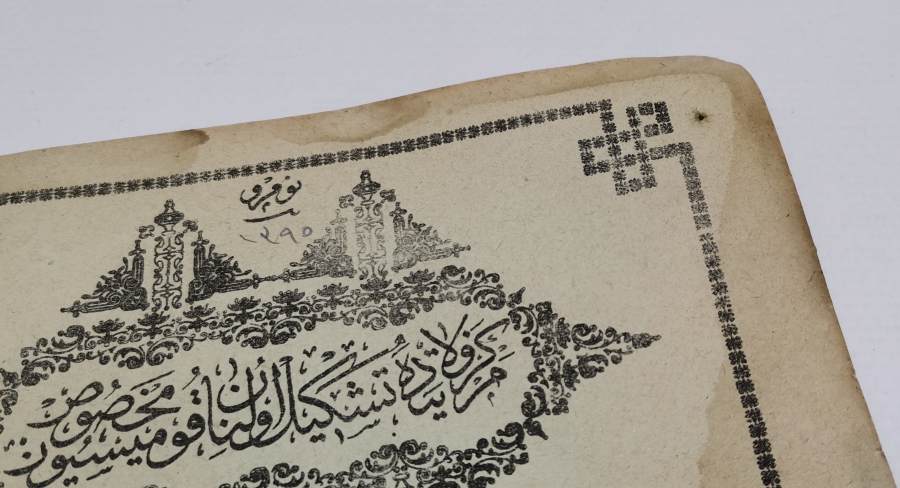 نومرو
١٢٩٥
مركز ولايتده تشكيل اولنان قوميسيون مخصوص